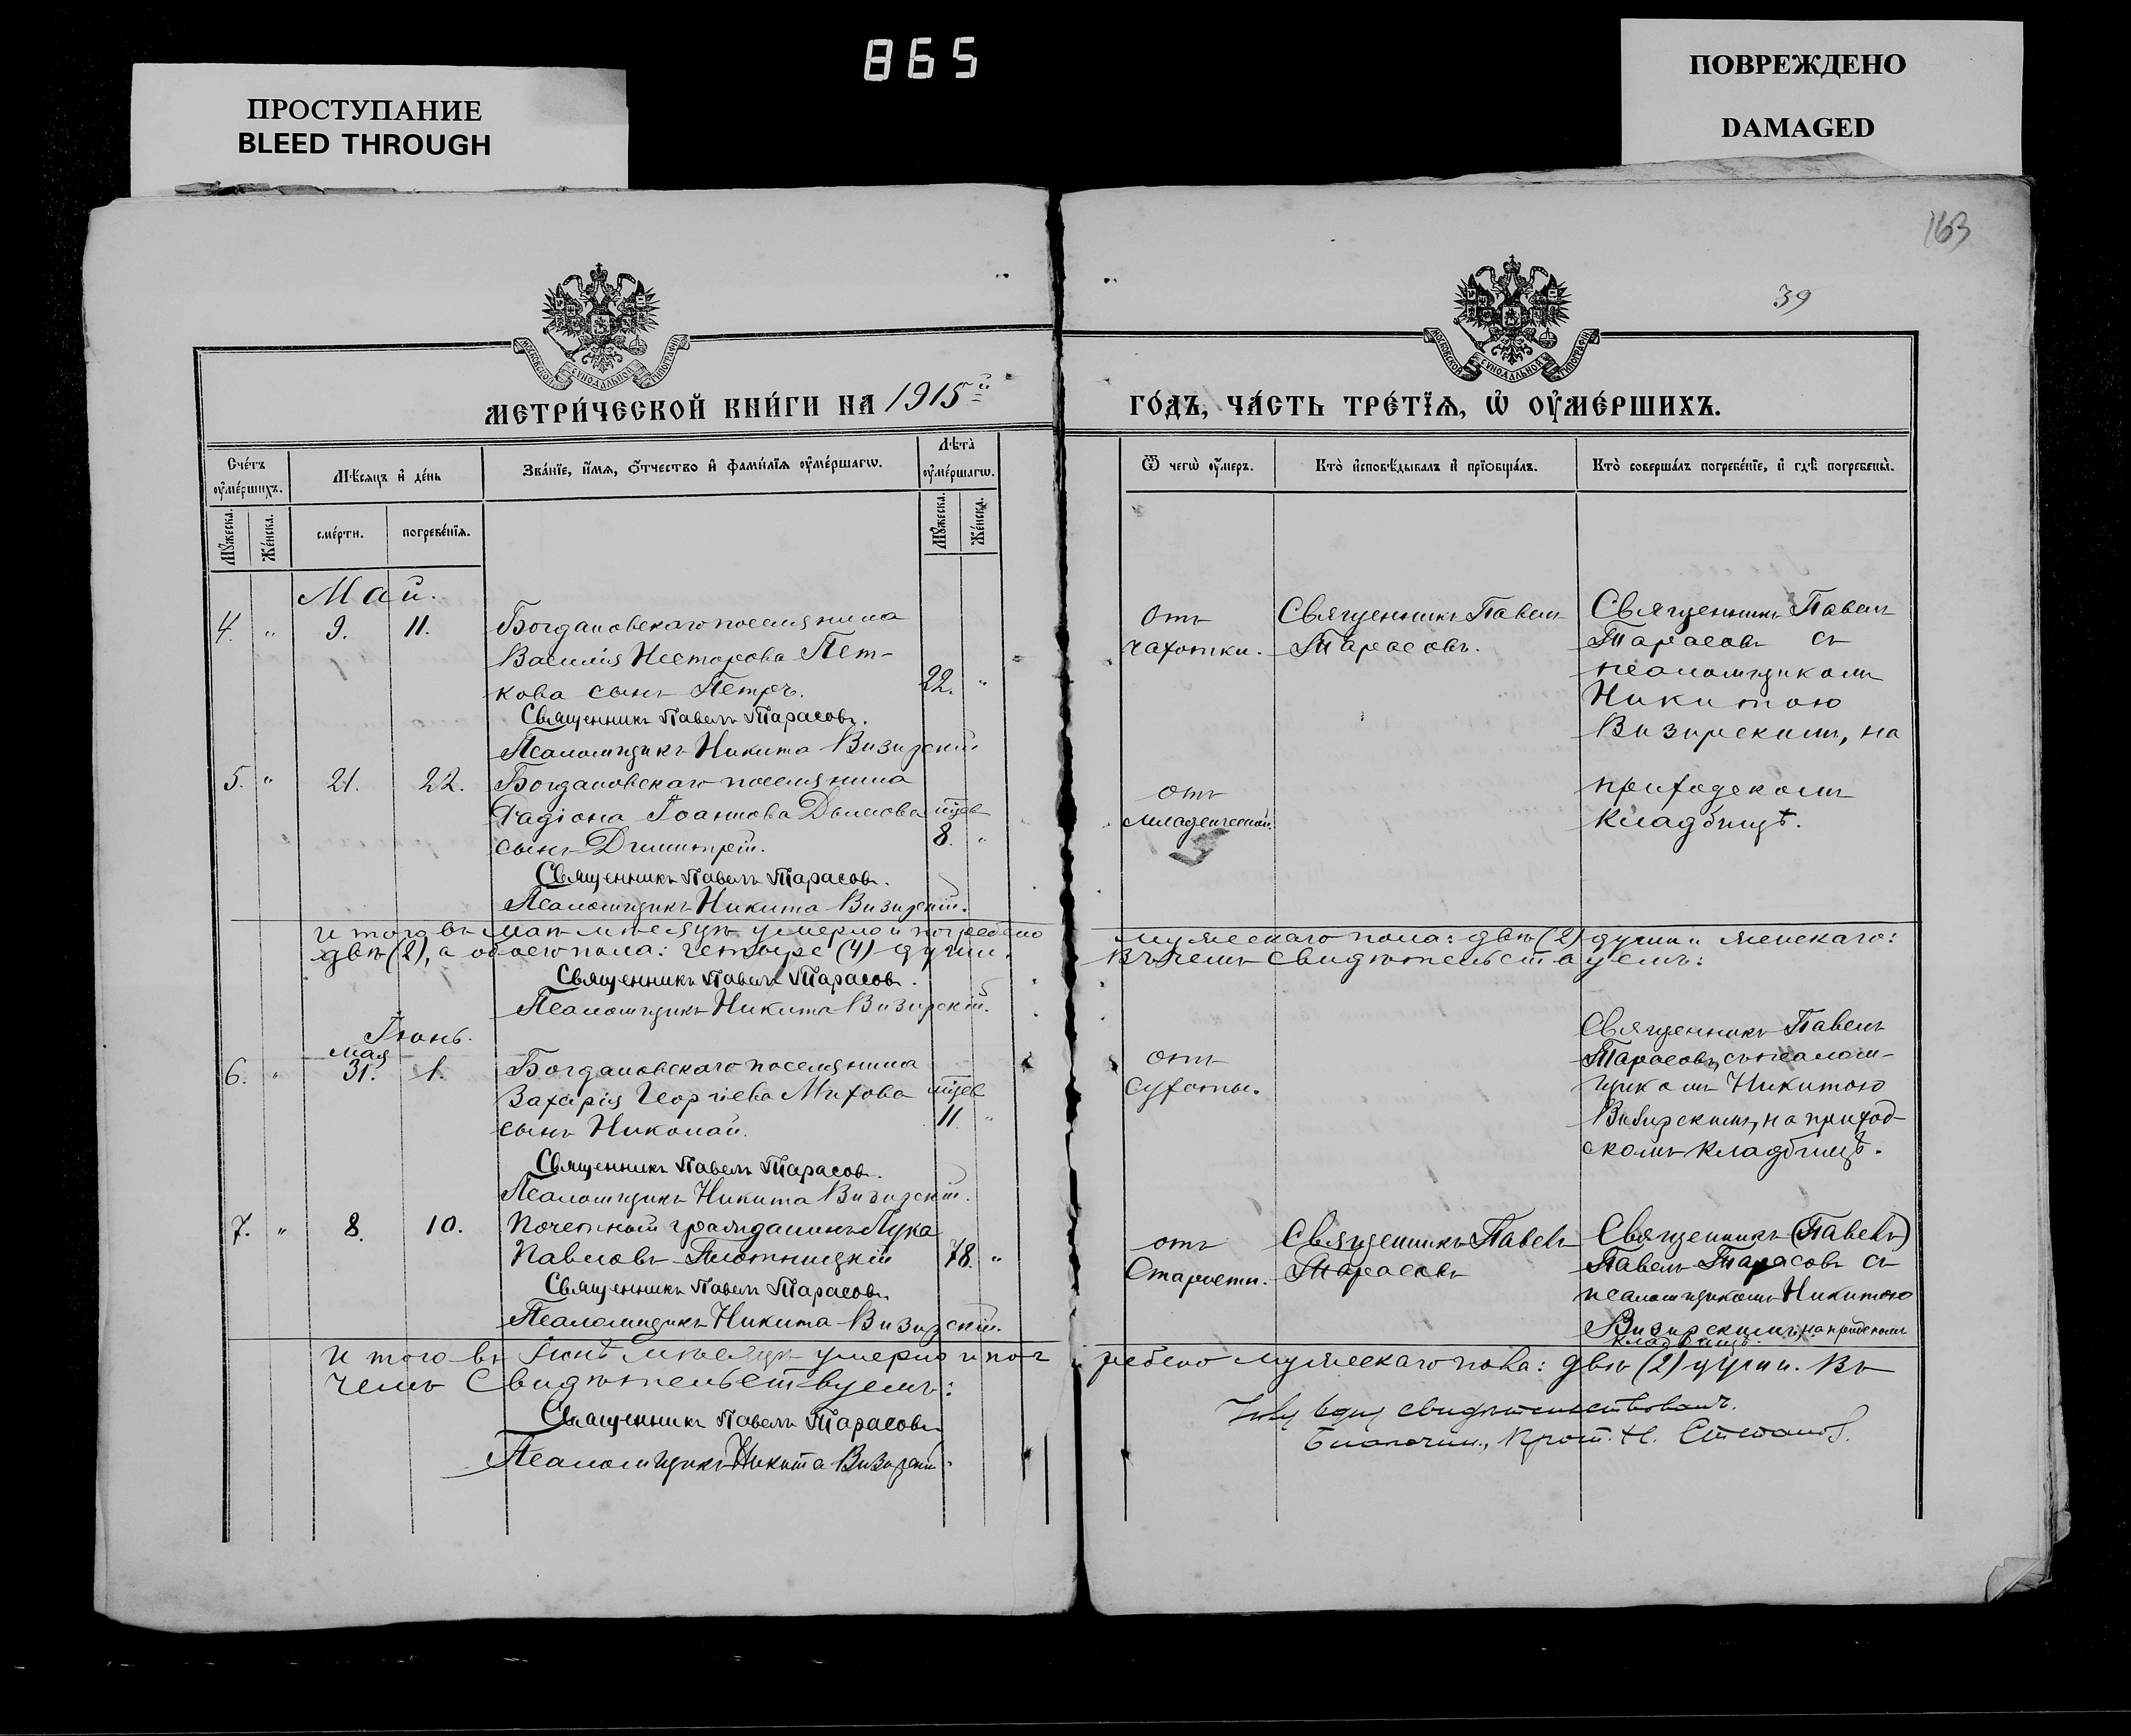 865
ПРОСТУПАНИЕ
BLEED THROUGH
ПОВРЕЖДЕНО
DAMAGED
163
39
МОСКОВСКОЙ СѴНОДАЛЬНОЙ ТИПОГРАФІИ
МОСКОВСКОЙ СѴНОДАЛЬНОЙ ТИПОГРАФІИ
МЕТРИ́ЧЕСКОЙ КНИ́ГИ НА 1915й
ГО́ДЪ, ЧА́СТЬ ТРЕ́ТІѦ, Ѡ҆ ОУ҆МЕ́РШИХЪ.
Сче́тъ оу҆ме́ршихъ.
Мꙋ́жеска.
Же́нска.
Мѣ́сѧцъ и҆ де́нь
сме́рти.
погребе́нїѧ.
Зва́нїе, и҆́мѧ, ѻ҆́тчество и҆ фамѝлїѧ оу҆ме́ршагѡ.
Лѣ́та оу҆ме́ршагѡ.
Мꙋ́жеска.
Же́нска.
Ѿ чегѡ̀ оу҆́меръ.
Кто̀ и҆сповѣ́дывалъ и҆ прїѻбща́лъ.
Кто̀ соверша́лъ погребе́нїе, и҆ гдѣ̀ погребены̀.
Май.
4. " 9. 11. Богдановскаго поселянина
Василія Несторова Пет-
кова сынъ Петръ. 22. "
Священникъ Павелъ Тарасовъ.
Псаломщикъ Никита Визирскій
Отъ
чахотки.
Священникъ Павелъ
Тарасовъ.
Священникъ Павелъ
Тарасовъ съ
псаломщикомъ
Никитою
Визирскимъ, на
приходскомъ
кладбищѣ.
5. " 21. 22. Богдановскаго поселянина
Радіона Іоаннова мцев
сынъ Димитрій. 8. "
Священникъ Павелъ Тарасовъ.
Псаломщикъ Никита Визирскій.
отъ
младенческой.
И того въ маѣ мѣсяцѣ умерло и погребено мужескаго пола: двѣ (2) души и женскаго:
двѣ (2), а обоего пола: четыре (4) души. Въ чемъ свидѣтельствуемъ:
Священникъ Павелъ Тарасовъ.
Псаломщикъ Никита Визирскій.
Іюнь.
мая
6. " 31. 1. Богдановскаго поселянина
Захарія Георгіева Митова мцев
сынъ Николай. 11 "
Священникъ Павелъ Тарасовъ.
Псаломщикъ Никита Визирскій.
отъ
сухоты.
Священникъ Павелъ
Тарасовъ, съ псалом-
щикомъ Никитою
Визирскимъ, на приход-
скомъ кладбищѣ.
7. " 8. 10. Почетный гражданинъ Лука
Павловъ Плотницкій 78. "
Священникъ Павелъ Тарасовъ
Псаломщикъ Никита Визирскій.
отъ
старости.
Священникъ Павелъ
Тарасовъ
Священникъ (Павелъ)
Павелъ Тарасовъ съ
псаломщикомъ Никитою
Визирскимъ, на приходскомъ
кладбищѣ.
И того въ Іюнѣ мѣсяцѣ умерло и погребено мужескаго пола: двѣ (2) души. Въ
чемъ свидѣтельствуемъ:
Священникъ Павелъ Тарасовъ
Псаломщикъ Никита Визирскій.
свидѣтельствовалъ.
Благочин., Прот. Н. Стефановъ.